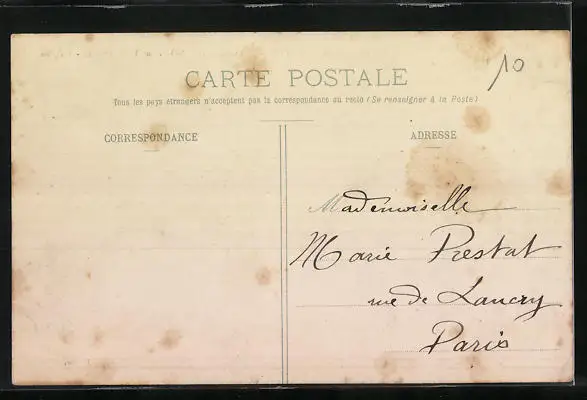 10
CARTE POSTALE
Tous les pays étrangers n'acceptent pas la correspondance au recto (Se renseigner à la Poste)
CORRESPONDANCE
ADRESSE
Mademoiselle
Marie Prestat
rue de Lancry
Paris